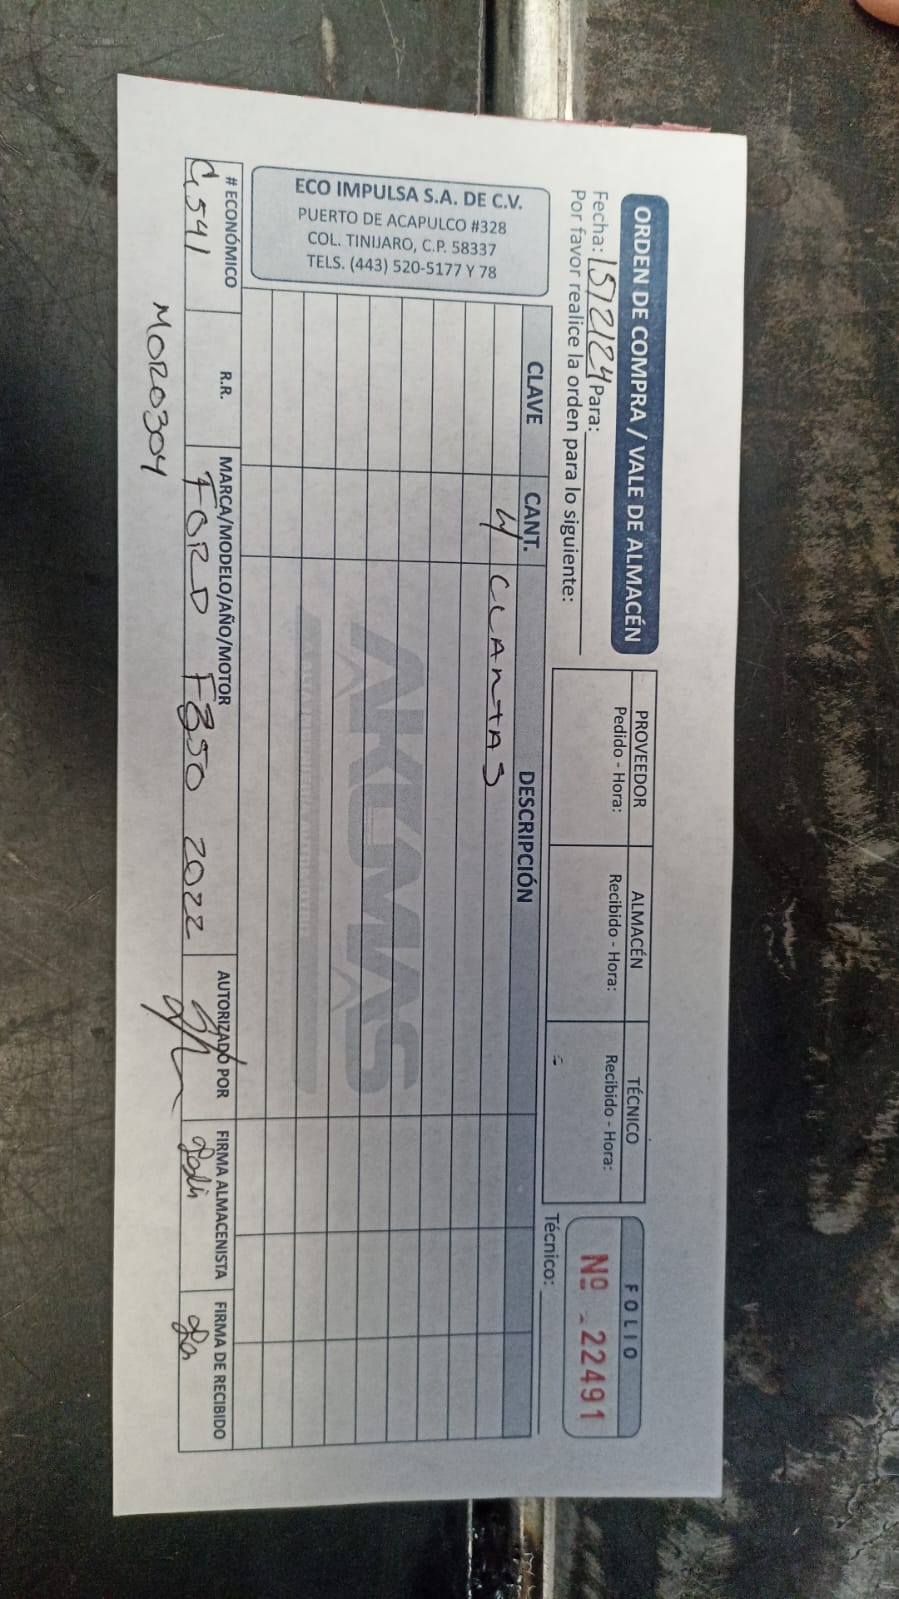 ORDEN DE COMPRA / VALE DE ALMACÉN
Fecha: 15/2/24 Para:
Por favor realice la orden para lo siguiente:
PROVEEDOR
Pedido - Hora:
ALMACÉN
Recibido - Hora:
TÉCNICO
Recibido - Hora:
FOLIO
Nº 22491
Técnico:
ECO IMPULSA S.A. DE C.V.
PUERTO DE ACAPULCO #328
COL. TINIJARO, C.P. 58337
TELS. (443) 520-5177 Y 78
CLAVE CANT. DESCRIPCIÓN
4 LLANTAS
AKUMAS
# ECONÓMICO R.R. MARCA/MODELO/AÑO/MOTOR AUTORIZADO POR FIRMA ALMACENISTA FIRMA DE RECIBIDO
C,541 FORD F350 2022
MOR0304